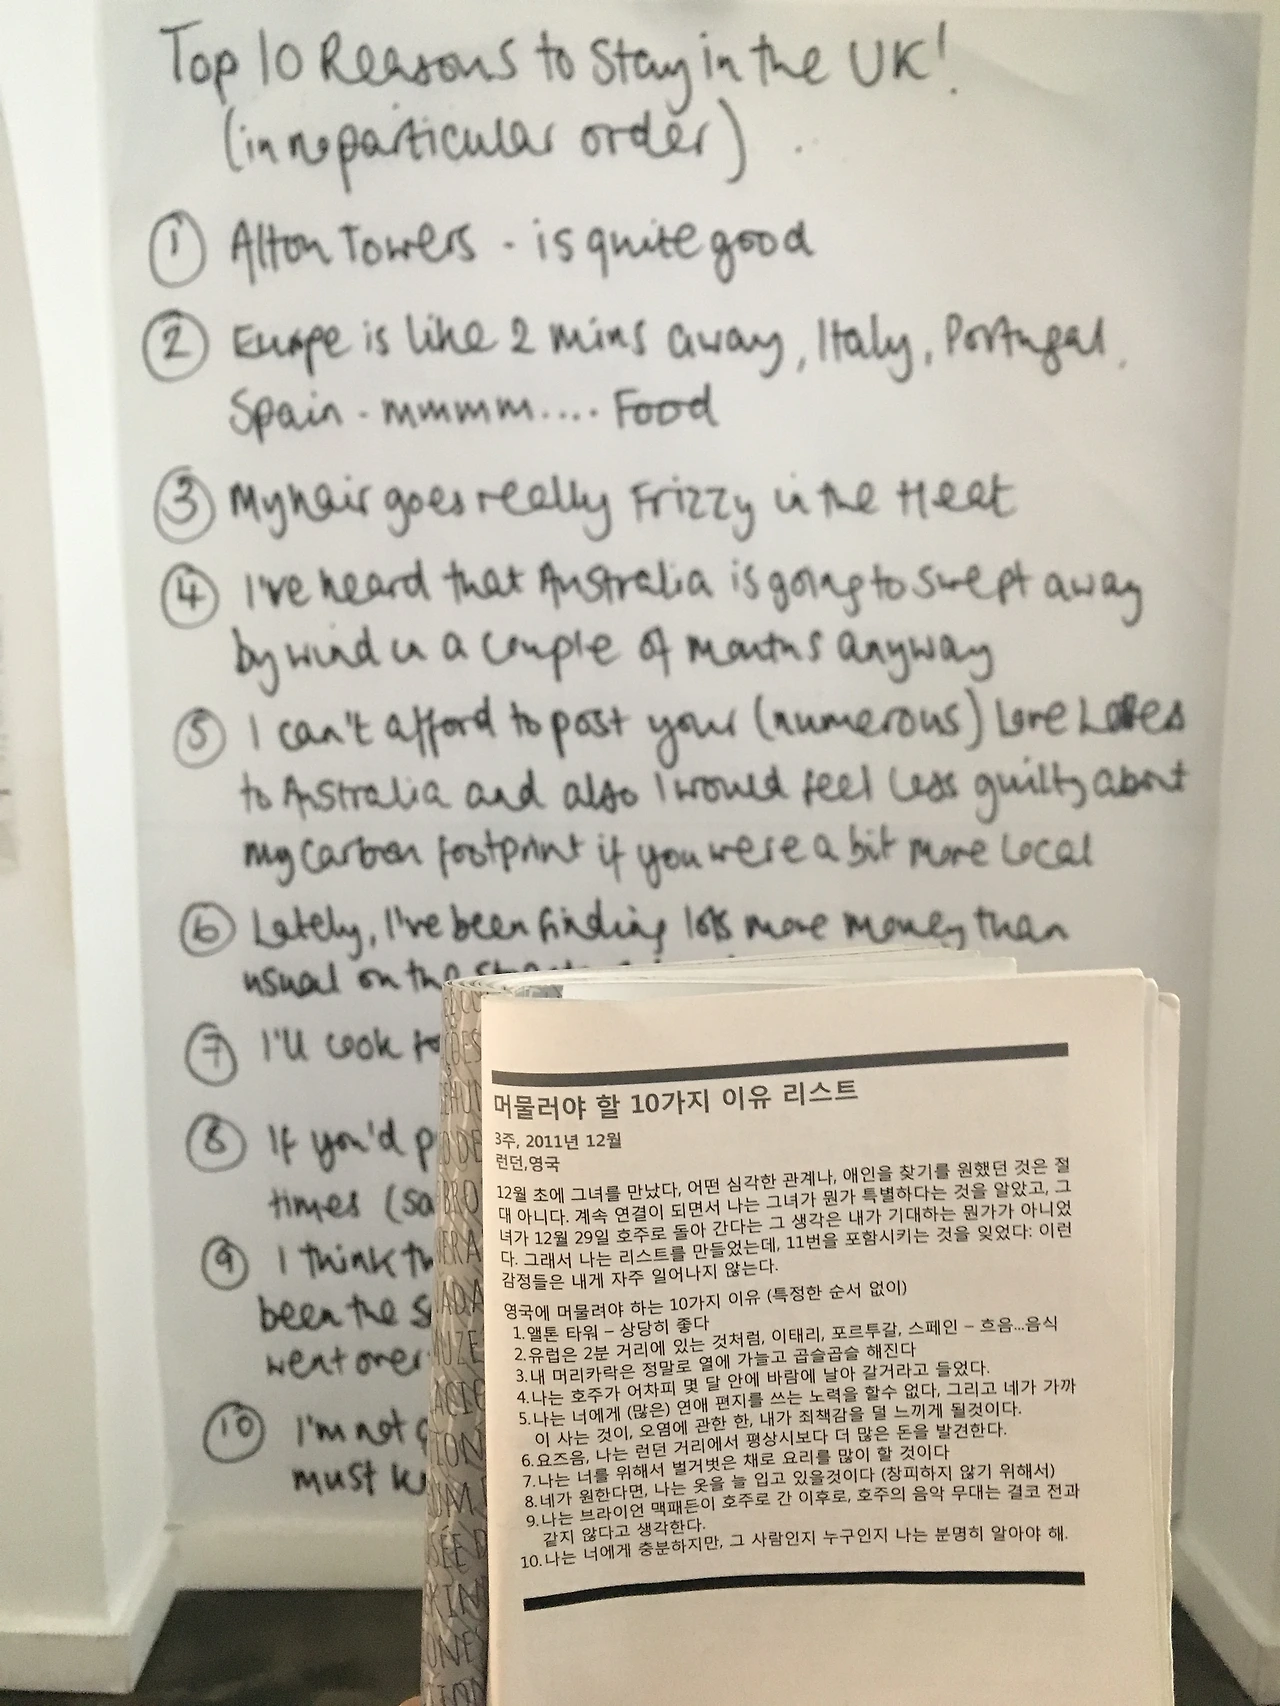 Top 10 Reasons to Stay in the UK!
(in no particular order)
① Alton Towers - is quite good
② Europe is like 2 mins away, Italy, Portugal,
Spain - mmmm.... Food
③ My hair goes really Frizzy in the Heat
④ I've heard that Australia is going to swept away
by wind in a couple of months anyway
⑤ I can't afford to post your (numerous) Love
to Australia and also I would feel less guilty about
my carbon footprint if you were a bit more local
⑥ Lately, I've been finding lots more money than
usual on the
⑦ I'll cook
⑧ If you'd
times
⑨ I think
been the
went over
⑩ I'm not
must
머물러야 할 10가지 이유 리스트
3주, 2011년 12월
런던,영국
12월 초에 그녀를 만났다, 어떤 심각한 관계나, 애인을 찾기를 원했던 것은 절
대 아니다. 계속 연결이 되면서 나는 그녀가 뭔가 특별하다는 것을 알았고, 그
녀가 12월 29일 호주로 돌아 간다는 그 생각은 내가 기대하는 뭔가가 아니었
다. 그래서 나는 리스트를 만들었는데, 11번을 포함시키는 것을 잊었다: 이런
감정들은 내게 자주 일어나지 않는다.
영국에 머물려야 하는 10가지 이유 (특정한 순서 없이)
1.앨톤 타워 – 상당히 좋다
2.유럽은 2분 거리에 있는 것처럼, 이태리, 포르투갈, 스페인 – 흐음...음식
3.내 머리카락은 정말로 열에 가늘고 곱슬곱슬 해진다
4.나는 호주가 어차피 몇 달 안에 바람에 날아 갈거라고 들었다.
5.나는 너에게 (많은) 연애 편지를 쓰는 노력을 할수 없다, 그리고 네가 가까
이 사는 것이, 오염에 관한 한, 내가 죄책감을 덜 느끼게 될것이다.
6.요즈음, 나는 런던 거리에서 평상시보다 더 많은 돈을 발견한다.
7.나는 너를 위해서 벌거벗은 채로 요리를 많이 할 것이다
8.네가 원한다면, 나는 옷을 늘 입고 있을것이다 (창피하지 않기 위해서)
9.나는 브라이언 맥패든이 호주로 간 이후로, 호주의 음악 무대는 결코 전과
같지 않다고 생각한다.
10.나는 너에게 충분하지만, 그 사람인지 누구인지 나는 분명히 알아야 해.